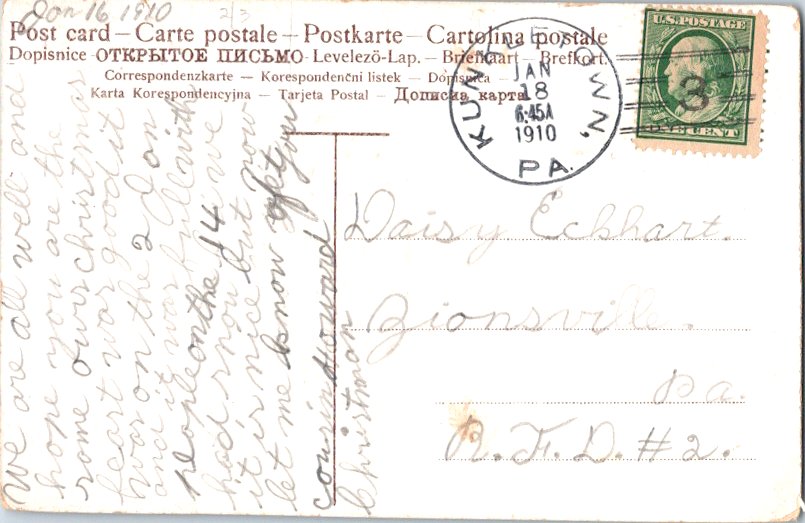 Jan 16 1910
2/3
Post card — Carte postale — Postkarte — Cartolina postale
Dopisnice — ОТКРЫТОЕ ПИСЬМО — Levelező-Lap. — Briefkaart — Brefkort.
Correspondenzkarte — Korespondenční listek — Dopisnica —
Karta Korespondencyjna — Tarjeta Postal — Дописна карта
KUNKLETOWN,
JAN
18
6:45A
1910
PA.
U.S. POSTAGE
3
ONE CENT
We are all well and
hope you are the
same our christmas
feast was good it
was on the 2 Jan
and it was full with
people on the 14 we
had snow but now
it is nice
let me know of you
cousin Howard
Christman
Daisy Eckhart.
Zionsville.
Pa.
R.F.D. #2.